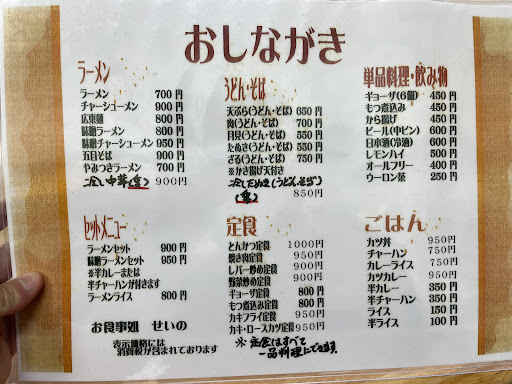 おしながき
ラーメン
ラーメン 700円
チャーシューメン 900円
広東麺 800円
味噌ラーメン 800円
味噌チャーシューメン 950円
五目そば 900円
やみつきラーメン 700円
冷し中華(夏) 900円
うどん・そば
天ぷら(うどん・そば) 650円
肉(うどん・そば) 700円
月見(うどん・そば) 550円
たぬき(うどん・そば) 550円
ざる(うどん・そば) 750円
*かき揚げ天付き
冷したぬき(うどん、そば)
(夏) 850円
単品料理・飲み物
ギョーザ(6個) 450円
もつ煮込み 450円
から揚げ 450円
ビール(中ビン) 600円
日本酒(冷酒) 600円
レモンハイ 500円
オールフリー 400円
ウーロン茶 250円
セットメニュー
ラーメンセット 900円
味噌ラーメンセット 950円
*半カレーまたは
半チャーハンが付きます
ラーメンライス 800円
お食事処 せいの
表示価格には
消費税が含まれております
定食
とんかつ定食 1000円
焼き肉定食 950円
レバー炒め定食 900円
野菜炒め定食 900円
ギョーザ定食 800円
もつ煮込み定食 800円
カキフライ定食 950円
カキ・ロースカツ定食 950円
※ 定食はすべて
一品料理にできます。
ごはん
カツ丼 950円
チャーハン 750円
カレーライス 750円
カツカレー 950円
半カレー 350円
半チャーハン 350円
ライス 150円
半ライス 100円